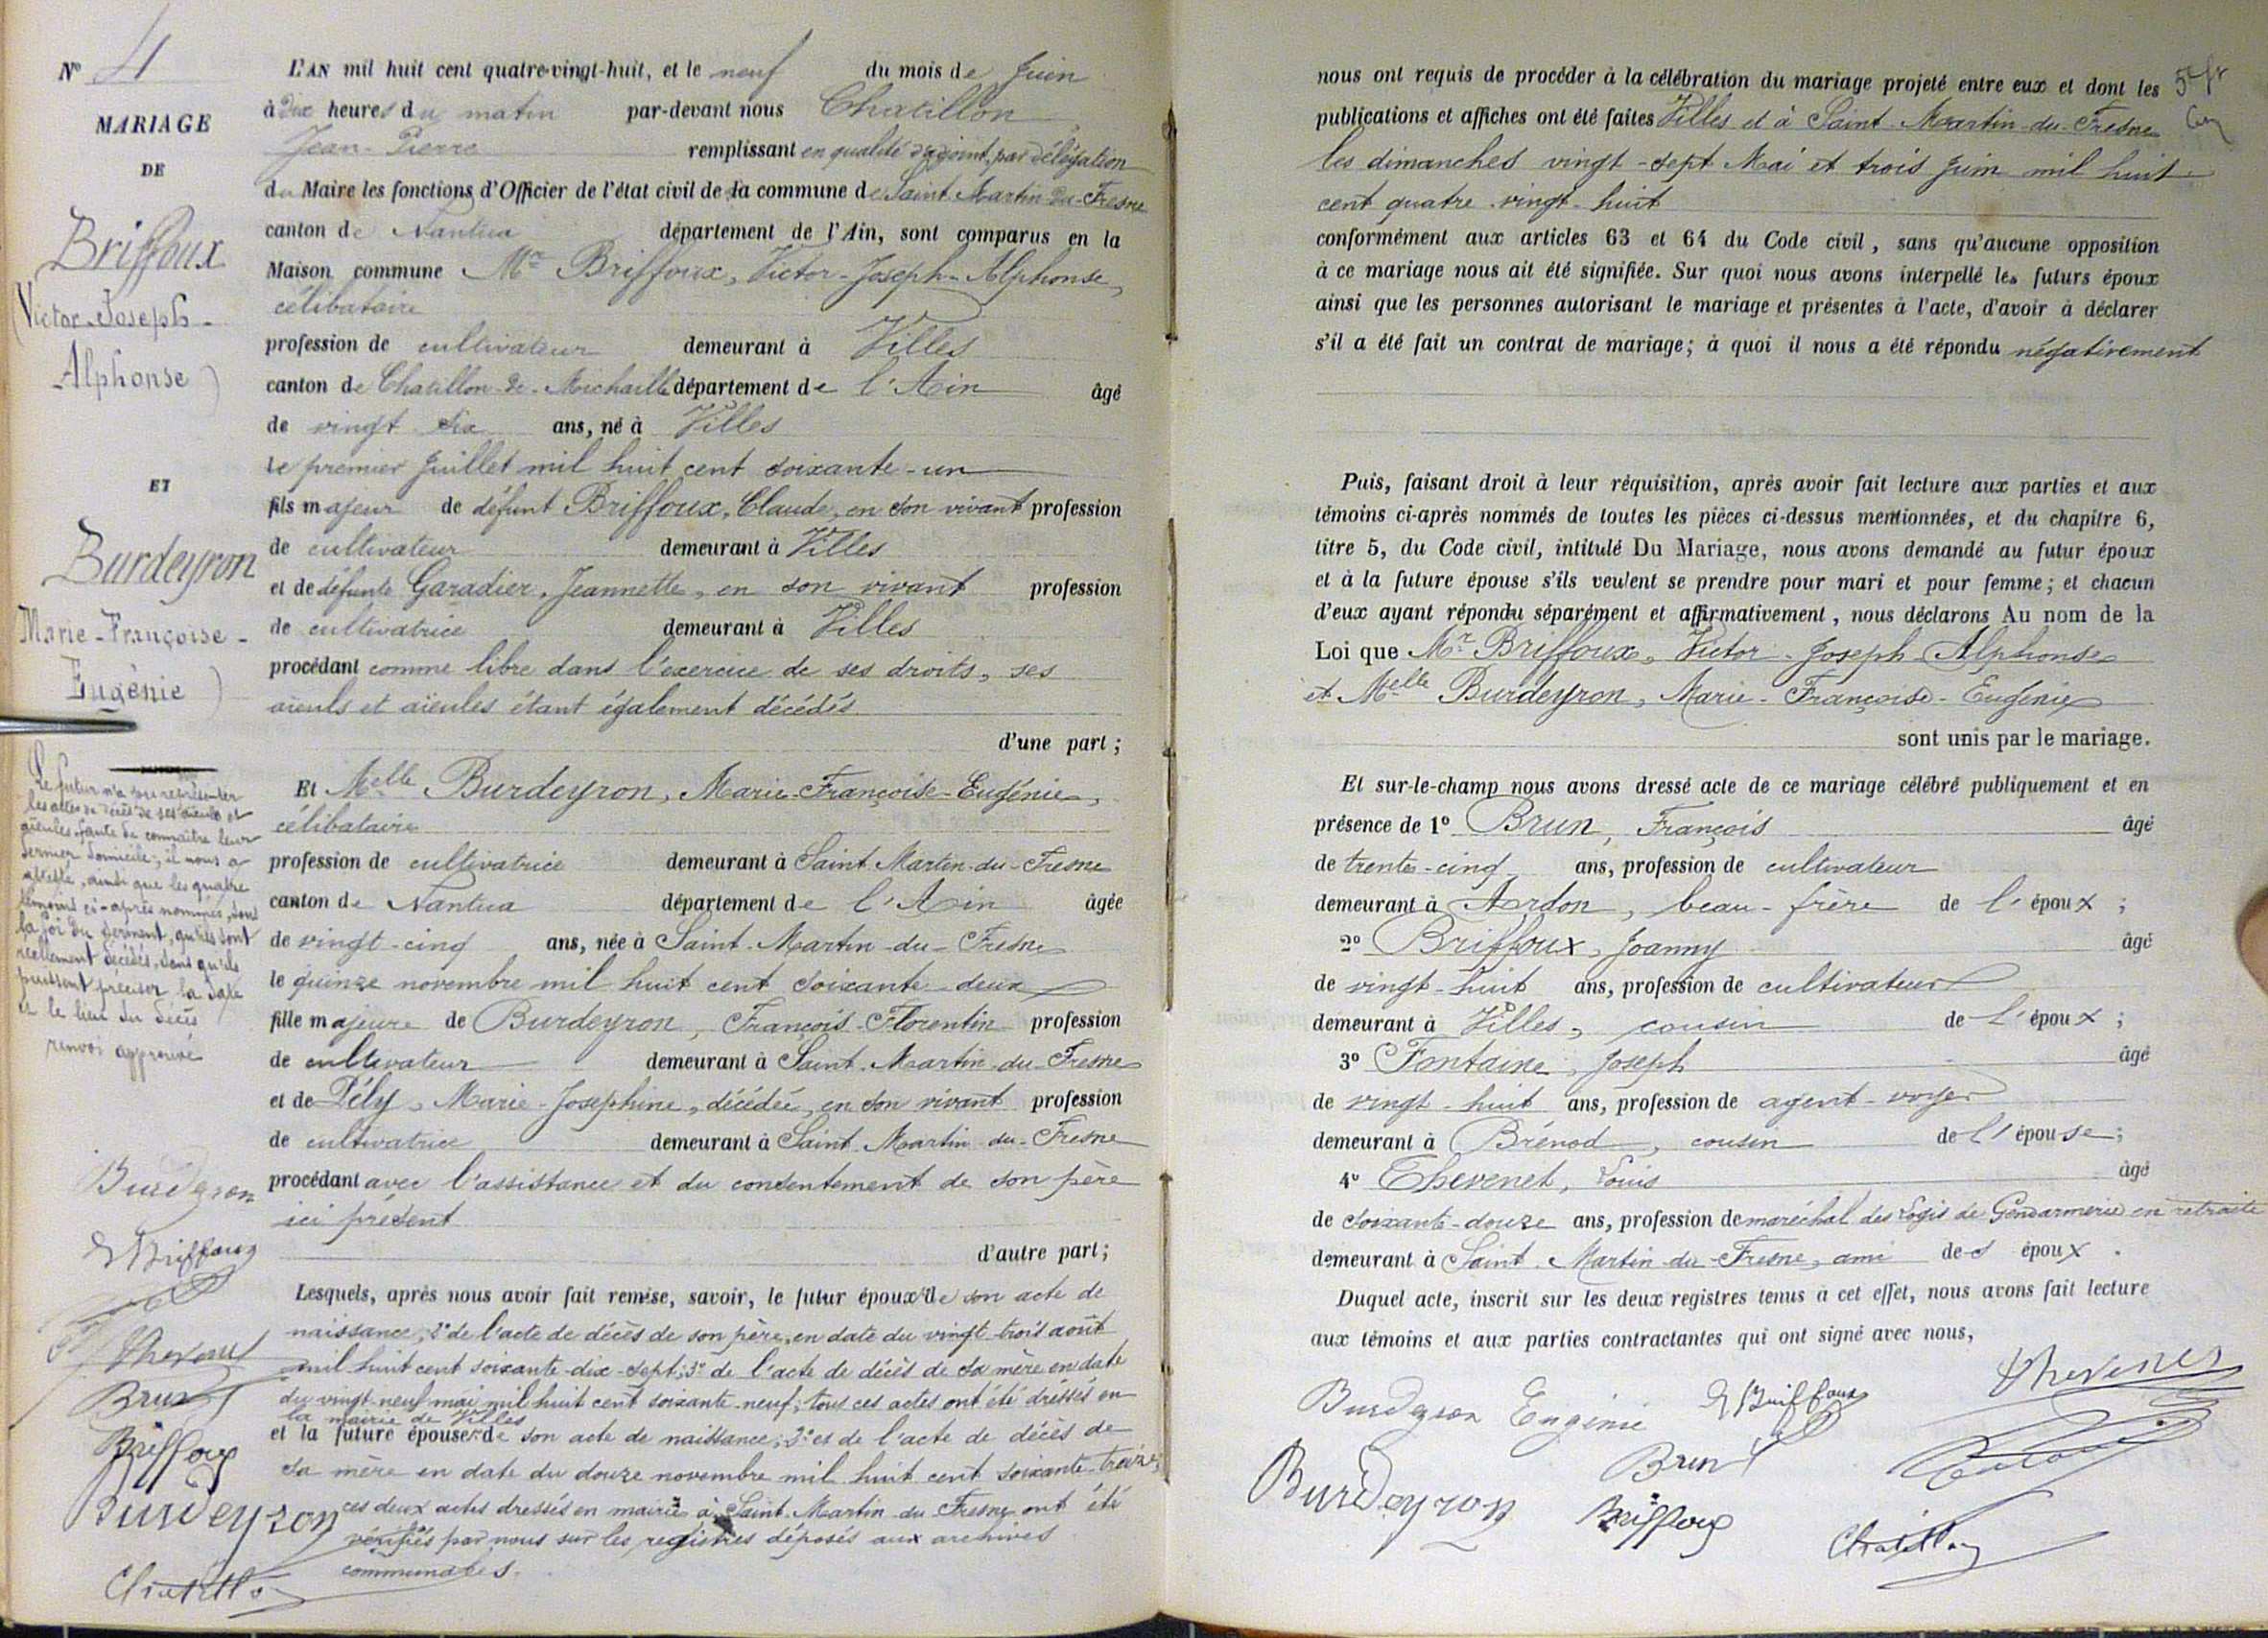 N° 4
MARIAGE
DE
Briffoux
(Victor-Joseph-
Alphonse)
ET
Burdeyron
Marie-Françoise-
Eugénie)
Le futur n'a pu représenter
les actes de décès de ses aïeuls et
aïeules, faute de connaître leur
dernier domicile; il nous a
attesté, ainsi que les quatre
témoins ci-après nommés, sous
la foi du serment, qu'ils sont
réellement décédés, sans qu'ils
puissent préciser la date
et le lieu du décès
renvoi approuvé
Burdeyron
Briffoux
Thevenet
Brun
Briffoux
Burdeyron
Chatillon
L'AN mil huit cent quatre-vingt-huit, et le neuf du mois de Juin
à dix heures du matin par-devant nous Chatillon
Jean-Pierre remplissant en qualité d'adjoint, par délégation
du Maire les fonctions d'Officier de l'état civil de la commune de Saint Martin-du-Fresne
canton de Nantua département de l'Ain, sont comparus en la
Maison commune Mr Briffoux, Victor-Joseph-Alphonse,
célibataire
profession de cultivateur demeurant à Villes
canton de Chatillon-de-Michaille département de l'Ain âgé
de vingt six ans, né à Villes
le premier Juillet mil huit cent soixante-un
fils majeur de défunt Briffoux, Claude, en son vivant profession
de cultivateur demeurant à Villes
et de défunte Garadier, Jeannette, en son vivant profession
de cultivatrice demeurant à Villes
procédant comme libre dans l'exercice de ses droits, ses
aïeuls et aïeules étant également décédés
d'une part;
Et Melle Burdeyron, Marie-Françoise-Eugénie,
célibataire
profession de cultivatrice demeurant à Saint Martin-du-Fresne
canton de Nantua département de l'Ain âgée
de vingt-cinq ans, née à Saint-Martin-du-Fresne
le quinze novembre mil huit cent soixante-deux
fille majeure de Burdeyron, François-Florentin profession
de cultivateur demeurant à Saint-Martin-du-Fresne
et de Pély, Marie-Josephine, décédée, en son vivant profession
de cultivatrice demeurant à Saint Martin-du-Fresne
procédant avec l'assistance et du consentement de son père
ici présent
d'autre part;
Lesquels, après nous avoir fait remise, savoir, le futur époux 1° de son acte de
naissance, 2° de l'acte de décès de son père, en date du vingt-trois août
mil huit cent soixante-dix-sept; 3° de l'acte de décès de sa mère en date
du vingt-neuf mai mil huit cent soixante-neuf; tous ces actes ont été dressés en
la mairie de Villes
et la future épouse 1° de son acte de naissance; 2° et de l'acte de décès de
sa mère en date du douze novembre mil huit cent soixante-treize;
ces deux actes dressés en mairie à Saint-Martin-du-Fresne ont été
vérifiés par nous sur les registres déposés aux archives
communales.
nous ont requis de procéder à la célébration du mariage projeté entre eux et dont les
publications et affiches ont été faites Villes et à Saint-Martin-du-Fresne
les dimanches vingt-sept Mai et trois Juin mil huit
cent quatre-vingt-huit
conformément aux articles 63 et 64 du Code civil, sans qu'aucune opposition
à ce mariage nous ait été signifiée. Sur quoi nous avons interpellé les futurs époux
ainsi que les personnes autorisant le mariage et présentes à l'acte, d'avoir à déclarer
s'il a été fait un contrat de mariage; à quoi il nous a été répondu négativement
Puis, faisant droit à leur réquisition, après avoir fait lecture aux parties et aux
témoins ci-après nommés de toutes les pièces ci-dessus mentionnées, et du chapitre 6,
titre 5, du Code civil, intitulé Du Mariage, nous avons demandé au futur époux
et à la future épouse s'ils veulent se prendre pour mari et pour femme; et chacun
d'eux ayant répondu séparément et affirmativement, nous déclarons Au nom de la
Loi que Mr Briffoux, Victor-Joseph-Alphonse
et Melle Burdeyron, Marie-Françoise-Eugénie
sont unis par le mariage.
Et sur-le-champ nous avons dressé acte de ce mariage célébré publiquement et en
présence de 1° Brun, François âgé
de trente-cinq ans, profession de cultivateur
demeurant à Ardon, beau-frère de l'époux;
2° Briffoux, Joanny âgé
de vingt-huit ans, profession de cultivateur
demeurant à Villes, cousin de l'époux;
3° Fontaine, Joseph âgé
de vingt-huit ans, profession de agent-voyer
demeurant à Brénod, cousin de l'épouse;
4° Thevenet, Louis âgé
de soixante-douze ans, profession de maréchal des Logis de Gendarmerie en retraite
demeurant à Saint-Martin-du-Fresne, ami des époux.
Duquel acte, inscrit sur les deux registres tenus à cet effet, nous avons fait lecture
aux témoins et aux parties contractantes qui ont signé avec nous,
Burdeyron Eugénie Briffoux Thevenet
Burdeyron Brun
Briffoux Chatillon